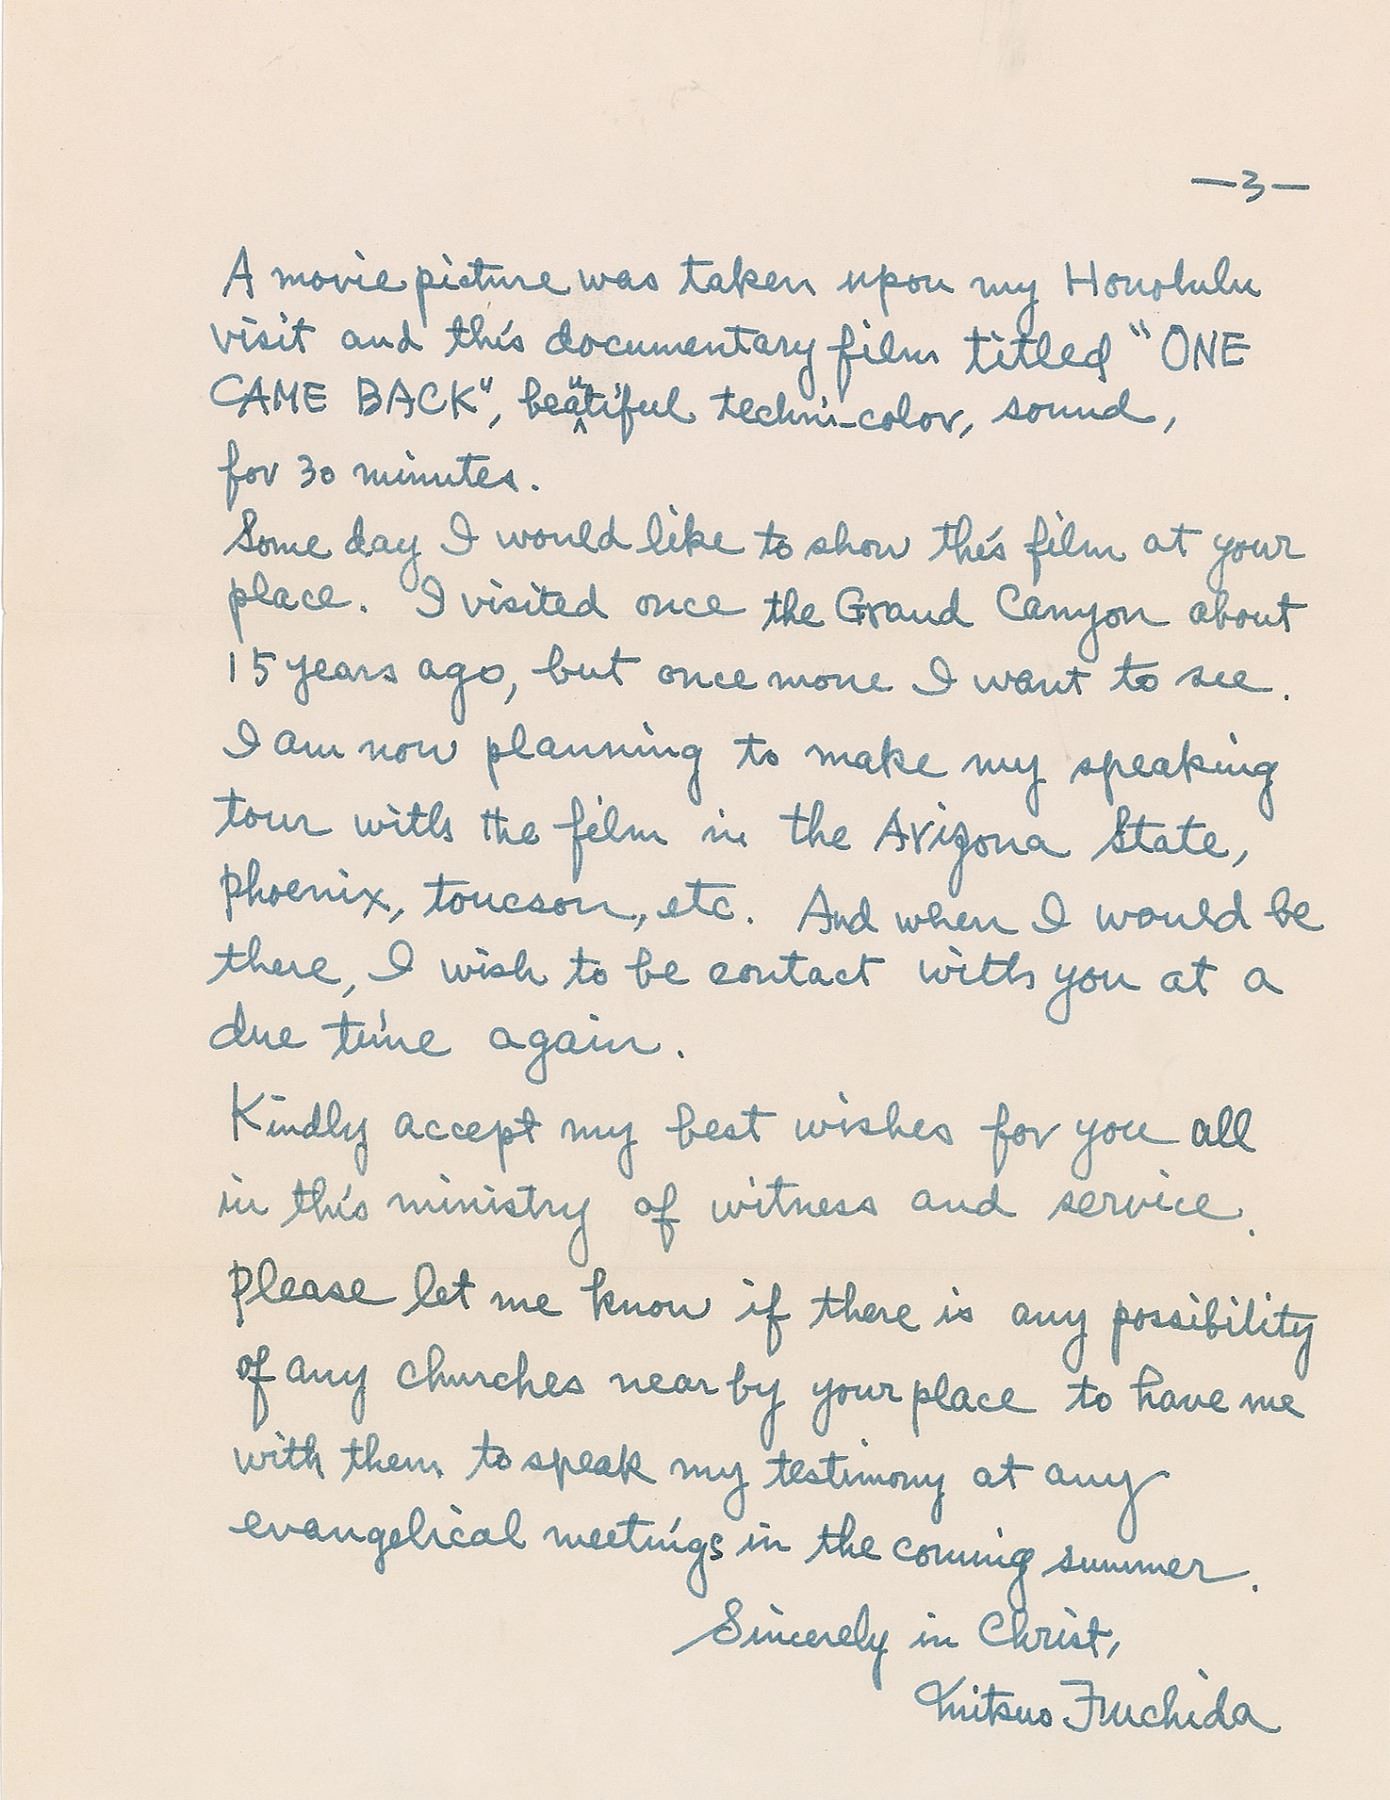 —3—
A movie picture was taken upon my Honolulu
visit and this documentary film titled "ONE
CAME BACK", beautiful techni-color, sound,
for 30 minutes.
Some day I would like to show this film at your
place. I visited once the Grand Canyon about
15 years ago, but once more I want to see.
I am now planning to make my speaking
tour with the film in the Arizona State,
Phoenix, toucson, etc. And when I would be
there, I wish to be contact with you at a
due time again.
Kindly accept my best wishes for you all
in this ministry of witness and service.
Please let me know if there is any possibility
of any churches near by your place to have me
with them to speak my testimony at any
evangelical meetings in the coming summer.
Sincerely in Christ,
Mitsuo Fuchida